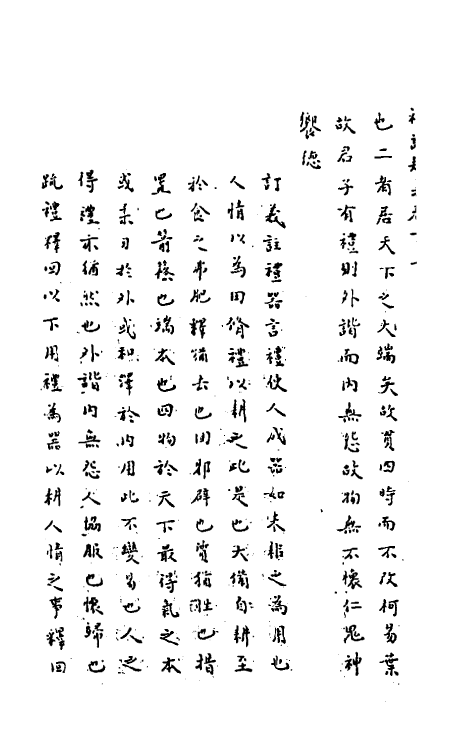 也二者居天下之大端矣故貫四時而不改柯易葉
故君子有禮則外諧而内無怨故物無不懷仁鬼神
饗德
訂義註禮器言禮使人成器如耒耜之為用也
人情以為田脩禮以耕之此是也大備自耕至
於食之弗肥釋猶去也回邪辟也質猶性也措
置也箭篠也端本也四物於天下最得氣之本
或柔刃於外或和澤於内用此不變易也人之
得禮亦猶然也外諧内無怨人協服也懷歸也
疏禮釋回以下用禮為器以耕人情之事釋回